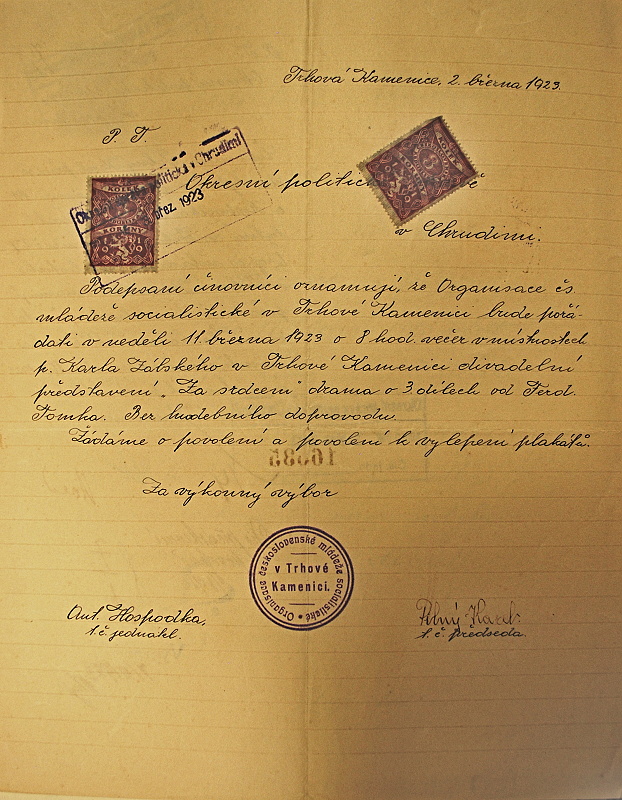 Trhová Kamenice, 2. března 1923.
P. T.
Okresní politick
v Chrudimi.
politická v Chrudimi
břez 1923
KOLEK
KORUNY
Podepsaní činovníci oznamují, že Organisace čs.
mládeže socialistické v Trhové Kamenici bude pořá-
dati v neděli 11. března 1923 o 8 hod. večer v místnostech
p. Karla Zálského v Trhové Kamenici divadelní
představení „Za srdcem" drama o 3 dílech od Ferd.
Tomka. Bez hudebního doprovodu.
Žádáme o povolení a povolení k vylepení plakátů.
16685
Za výkonný výbor
Organisace československé mládeže socialistické
v Trhové
Kamenici.
Ant. Hospodka,
t. č. jednatel.
Pilný Karel
t. č. předseda.